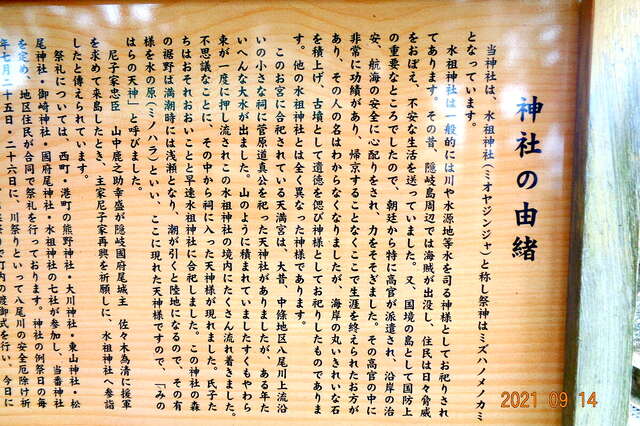 神社の由緒
当神社は、水祖神社(ミオヤジンジャ)と称し祭神はミズハノメノカミ
となっています。
水祖神社は一般的には川や水源地等水を司る神様としてお祀りされ
てあります。その昔、隠岐島周辺では海賊が出没し、住民は日々脅威
をおぼえ、不安な生活を送っていました。又、国境の島として国防上
の重要なところでしたので、朝廷から特に高官が派遣され、沿岸の治
安、航海の安全に心配りをされ、力をそそぎました。その高官の中に
非常に功績があり、帰京することなくここで生涯を終えられたお方が
あり、その人の名はわからなくなりましたが、海岸の丸いきれいな石
を積上げ、古墳として遺徳を偲び神様としてお祀りしたものでありま
す。他の水祖神社とは全く異なった神様であります。
このお宮に合祀されている天満宮は、大昔、中條地区八尾川上流沿
いの小さな祠に菅原道真公を祀った天神社がありましたが、ある年た
いへんな大水が出ました。山のように積まれていましたすくもやわら
束が一度に押し流されこの水祖神社の境内にたくさん流れ着きました。
不思議なことに、その中から祠に入った天神様が現れました。氏子た
ちはおそれおおいことと早速水祖神社に合祀しました。この神社の森
の裾野は満潮時には浅瀬となり、潮が引くと陸地になるので、その有
様を水の原(ミノハラ)といい、ここに現れた天神様ですので、「みの
はらの天神」と呼びました。
尼子家忠臣 山中鹿之助幸盛が隠岐國府尾城主 佐々木為清に援軍
を求めて来島したとき、主家尼子家再興を祈願しに、水祖神社へ参詣
したと傳えられています。
祭礼については、西町・港町の熊野神社・大川神社・東山神社・松
尾神社・御崎神社・國府尾神社・水祖神社の七社が参加し、当番神社
を定め、地区住民が合同で祭礼を行っております。神社の例祭日の毎
年七月二十五日・二十六日に、川祭りといって八尾川の安全厄除け祈
渡御式を行い、今日に
2021 09 14